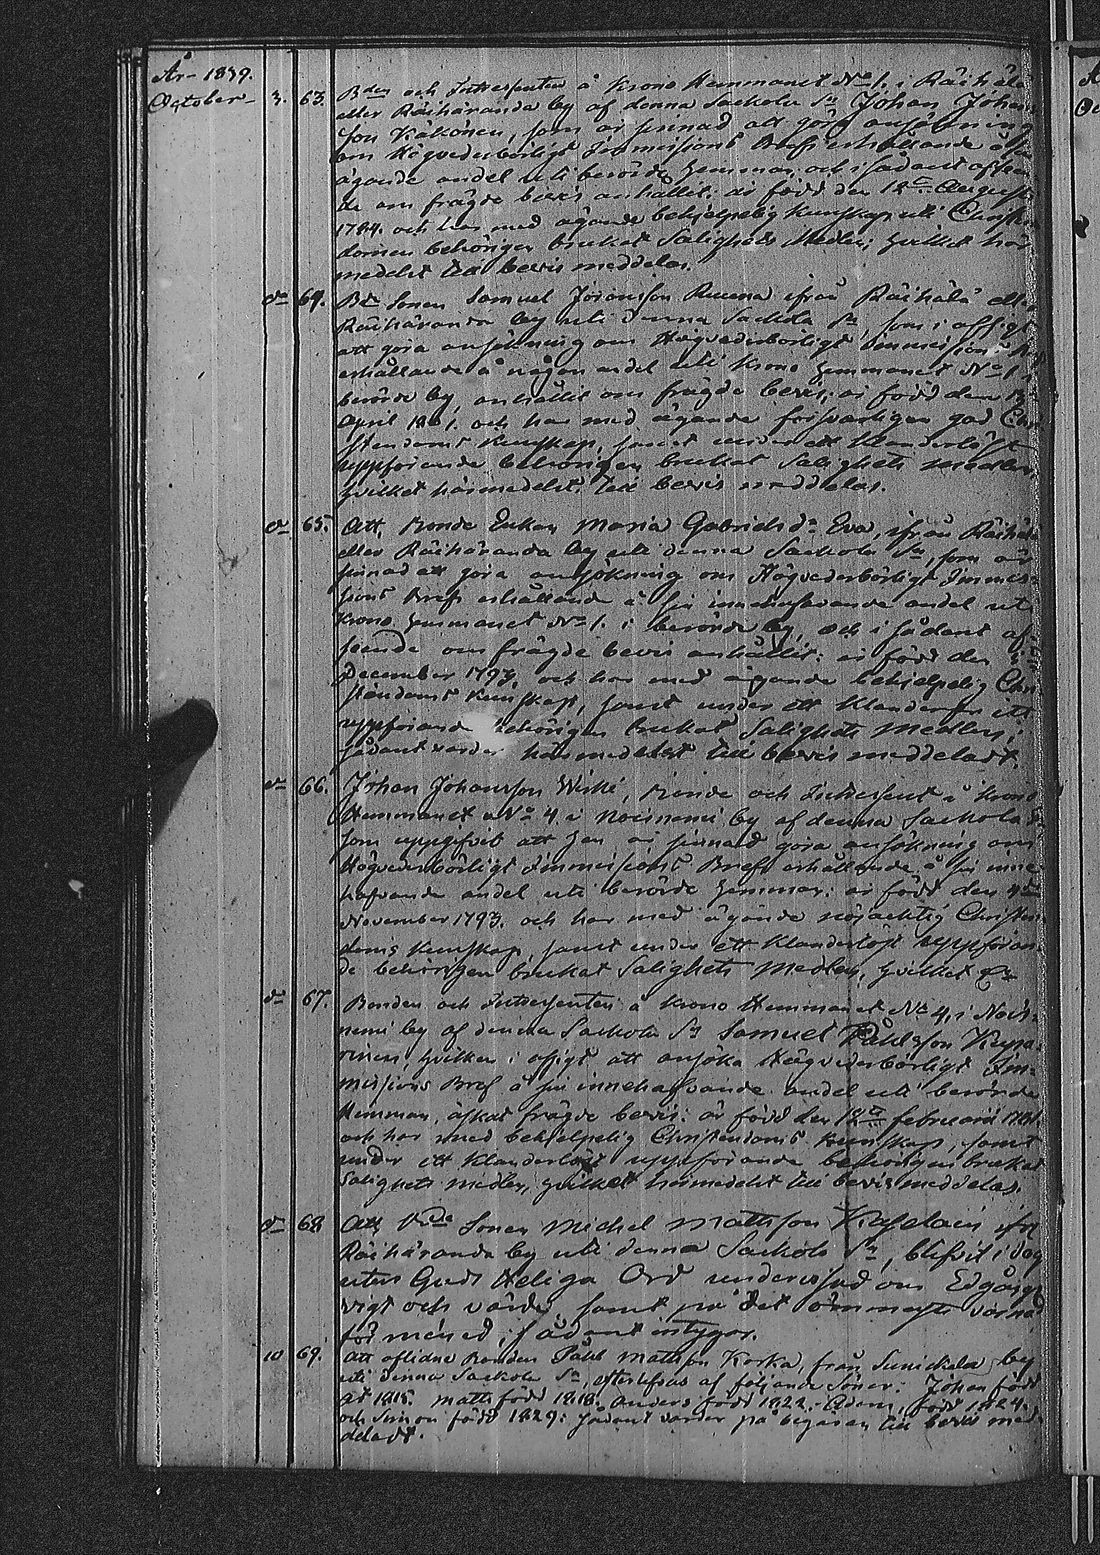 År 1839.
October 3. 63. Bden och Intressenten å Krono Hemmanet No 1. i Räihälä
eller Räihäranda by af denna Sackola Sn Johan Johans
son Käkönen, som är sinnad att göra ansökning
om Högvederbörligt Immissions Brefs erhållande å
ägande andel uti berörde Hemman, och i sådant afseen
de om frägde bevis anhållit: är född den 12 Augusti
1784. och har med ägande behjelpelig kunskap uti Christen
domen behörigen brukat Salighets Medlen; hvilket här
medelst till bevis meddelas.
do 64. Bde Sonen Samuel Johansson Ruuna ifrån Räihälä eller
Räihäranda by uti denna Sackola Sn, som i afsigt
att göra ansökning om Högvederbörligt Immissions
erhållande å någon andel uti Krono Hemmanet No 1
berörde by, anhållit om frägde bevis; är född den
April 1801. och har med ägande försvarligen god Chri
stendoms kunskap, samt under ett klanderlöst
uppförande behörigen brukat Salighets medlen
hvilket härmedelst till bevis meddelas.
do 65. Att, Bonde Enkan Maria Gabrielsdr Eva, ifrån Räihälä
eller Räihäranda by uti denna Sackola Sn, som är
sinnad att göra ansökning om Högvederbörligt Immis
sions Brefs erhållande å sin innehafvande andel uti
Krono Hemmanet No 1. i berörde by, och i sådant af
seende om frägde bevis anhållit: är född den
December 1793. och har med ägande behjelpelig Chri
stendoms kunskap, samt under ett klanderfritt
uppförande behörigen brukat Salighets Medlen;
sådant varder härmedelst till bevis meddeladt.
do 66. Johan Johansson Wiski, Bonde och Intressent å Krono
Hemmanet No 4. i Noisniemi by af denna Sackola Sn
som uppgifvit att han är sinnad göra ansökning om
Högvederbörligt Immissions Brefs erhållande å sin inne
hafvande andel uti berörde Hemman: är född den 4de
November 1793. och har med ägande nöjacktig Christen
doms kunskap, samt under ett klanderlöst uppföran
de behörigen brukat Salighets Medlen, hvilket &c
do 67. Bonden och Intressenten å Krono Hemmanet No 4, i Nois
niemi by af denna Sackola Sn Samuel Påhlsson Kupa
rinen hvilken i afsigt att ansöka Högvederbörligt Im
missions Bref å sin innehafvande andel uti berörde
Hemman, äskat frägde bevis: är född den 12 februarii
och har med behjelpelig Christendoms kunskap, samt
under ett klanderlöst uppförande behörigen brukat
Salighets medlen, hvilket härmedelst till bevis meddelas.
do 68 Att Bde Sonen Michel Mattsson Kaselain ifrån
Räihäranda by uti denna Sackola Sn, blifvit i dag
utur Guds Heliga Ord undervisad om Edgångs
vigt och värde, samt på det ömmaste varnad
för mened; sådant intygar.
10 69. Att aflidne Bonden Påhl Mattsson Korka, från Sunickala by
uti denna Sackola Sn, efterlefvas af följande Söner: Johan född
år 1815. Matts född 1818. Anders född 1822. Adam, född 1824.
och Simon född 1829: sådant varder på begäran till bevis med
deladt.